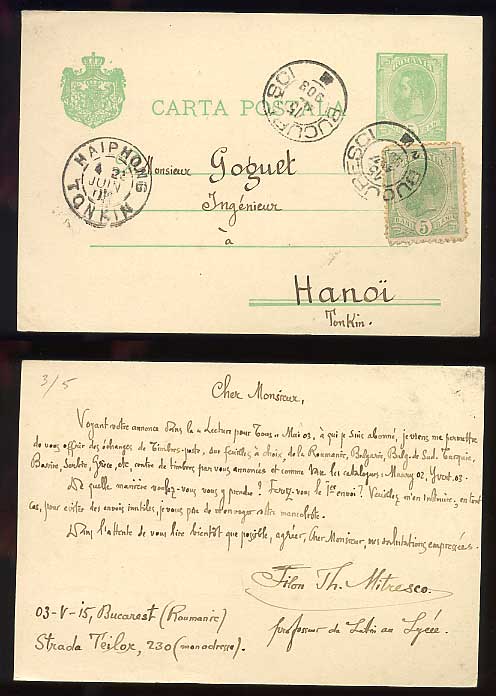 ROMANIA
CARTA POSTALA
BUCURESCI
15 903
BUCURESCI
HAIPHONG
4 2E
JUIN
TONKIN
Monsieur Goguet
Ingénieur
à
Hanoï
Tonkin.
BANI 5 BANI
3/5
Cher Monsieur,
Voyant votre annonce dans la « Lecture pour Tous » Mai 03, à qui je suis abonné, je viens me permettre
de vous offrir des échanges de timbres-poste, aux feuilles à choix, de la Roumanie, Bulgarie, Bulg. de Sud. Turquie,
Bosnie Serbie, Grèce, etc contre de timbres par vous annoncés et comme base les catalogues Maury 02. Yvert. 03.
De quelle manière voulez-vous vous y prendre? Ferez-vous le 1er envoi? Veuillez m'en instruire, en tout
cas, pour éviter des envois inutiles, je vous pas de m'envoyer votre mancoliste.
Dans l'attente de vous lire bientôt que possible, agréez, Cher Monsieur, mes salutations empressées.
Filon Th. Mitresco.
professeur de Latin au Lycée.
03-V-15, Bucarest (Roumanie)
Strada Teilor, 230 (mon adresse).